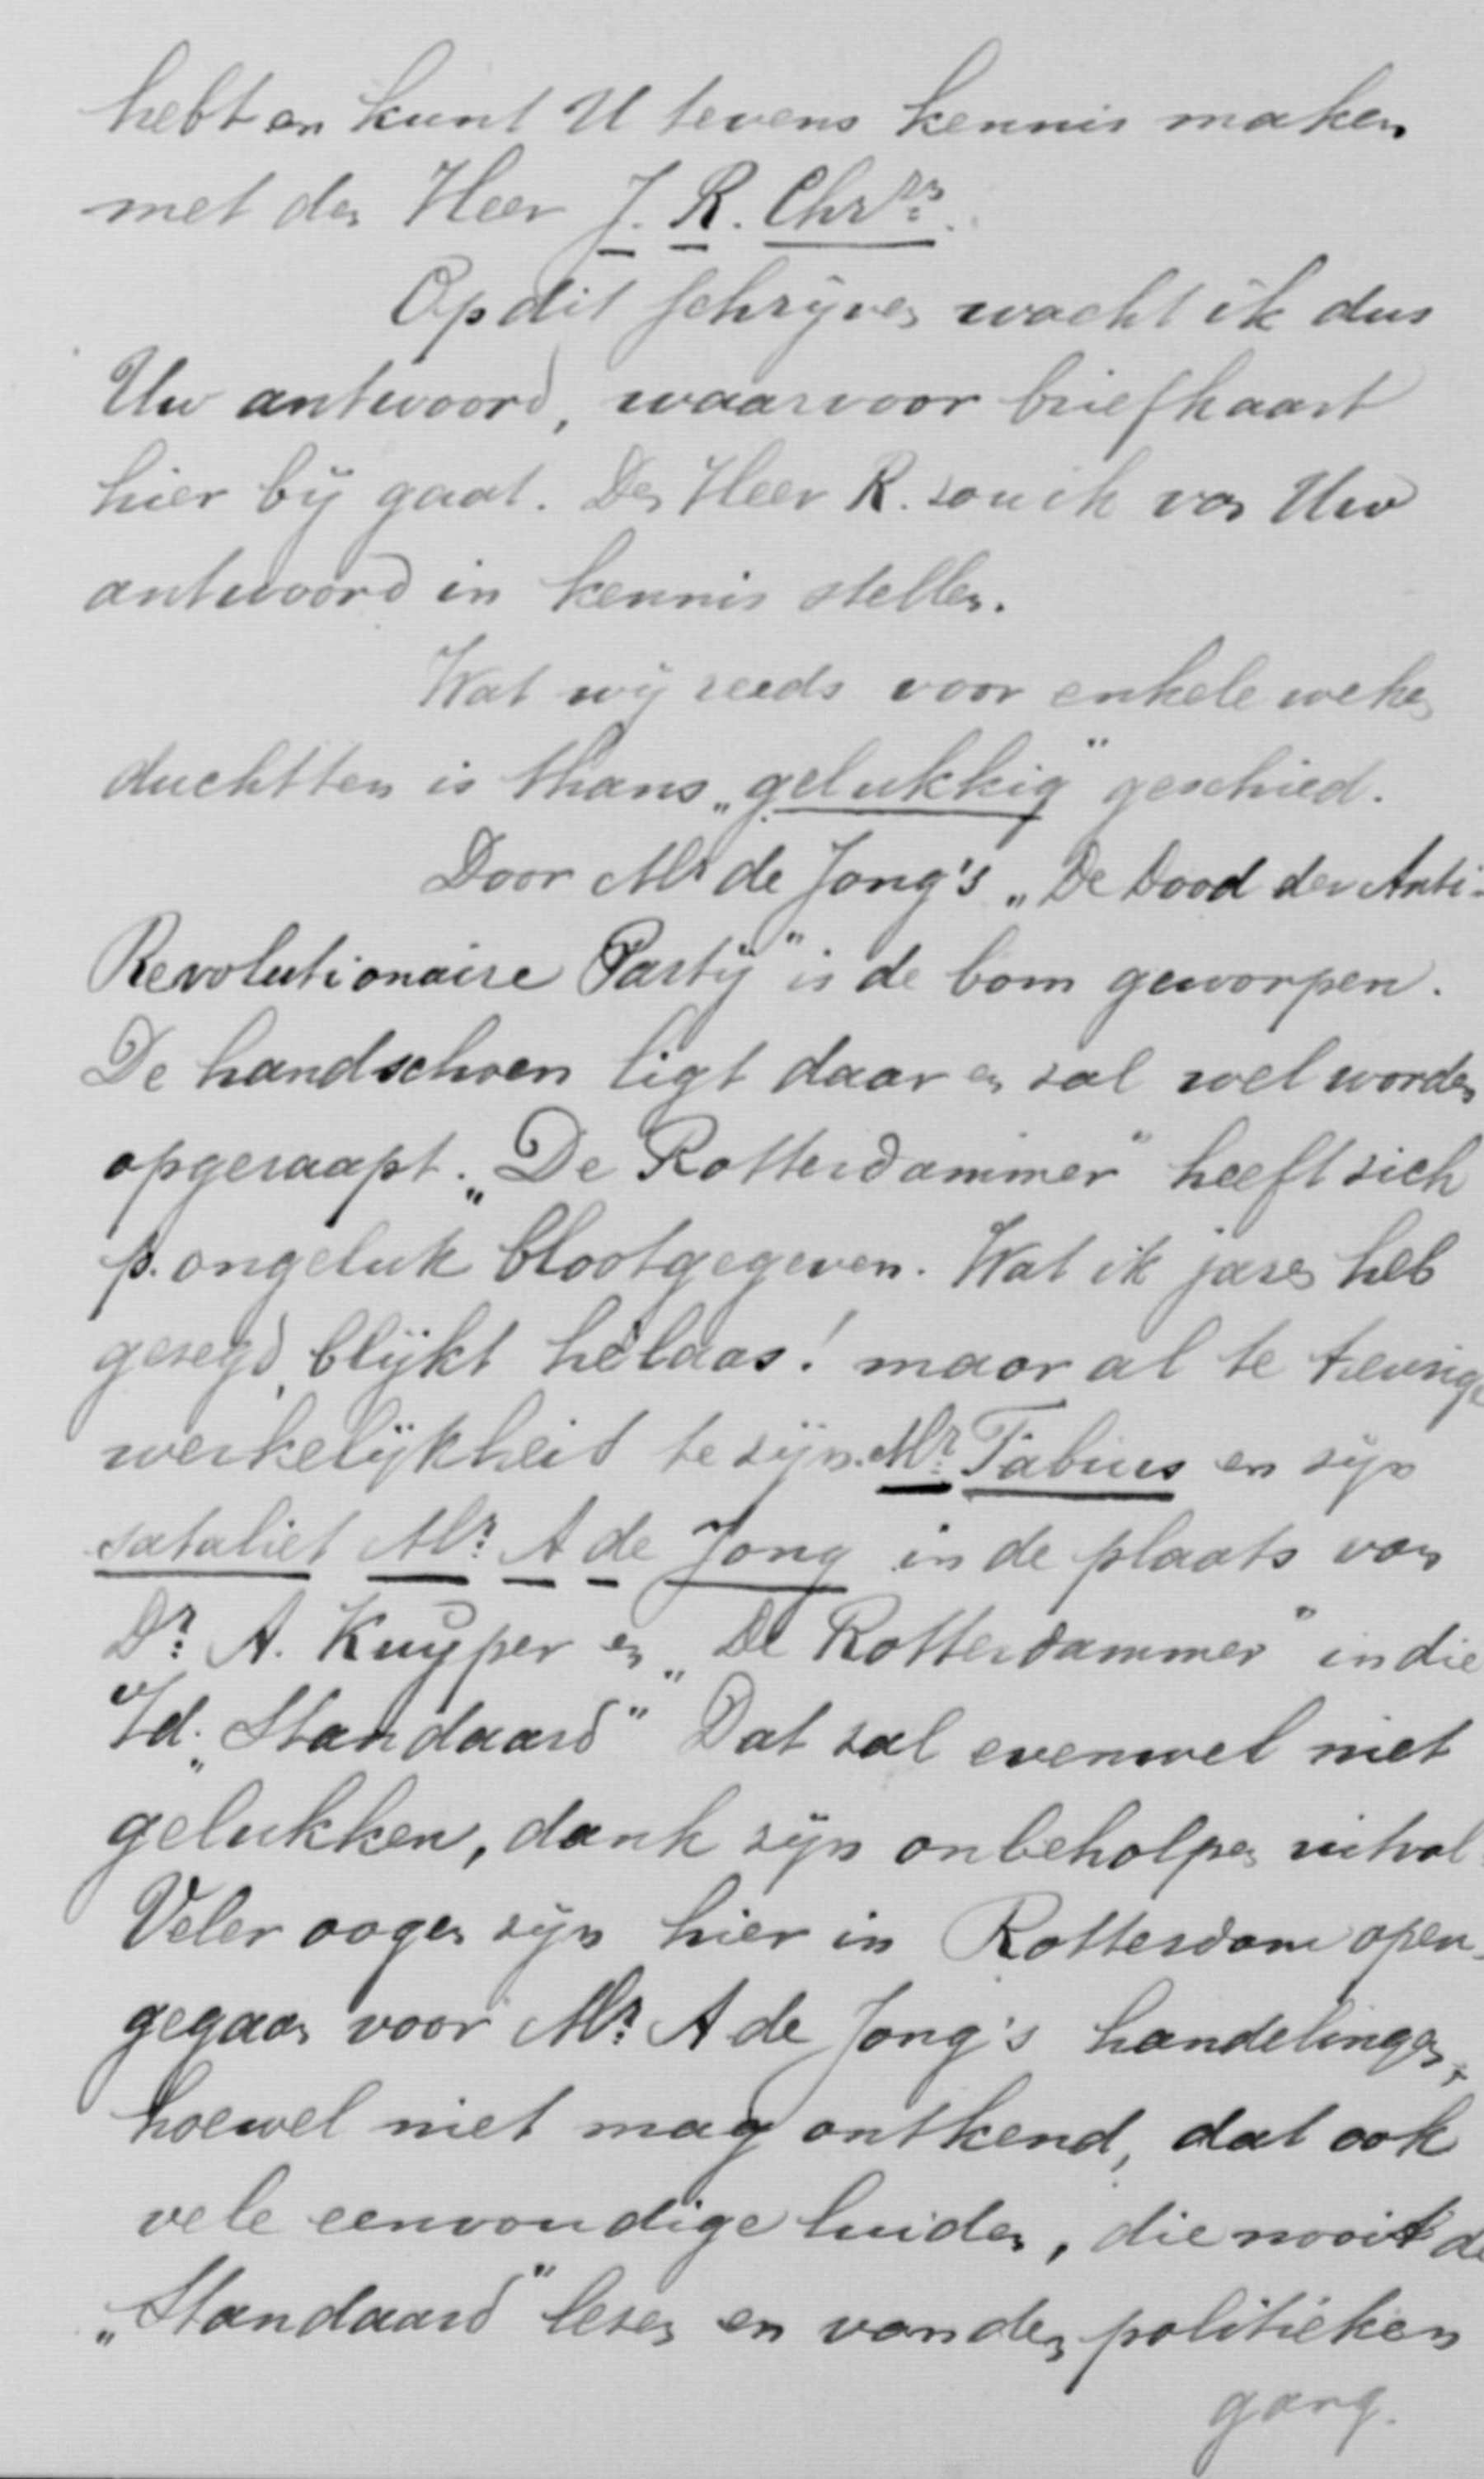 hebt en kunt U tevens kennis maken
met den Heer J. R. Chrzn.
Op dit schrijven wacht ik dus
Uw antwoord, waarvoor briefkaart
hier bij gaat. Den Heer R. zou ik van Uw
antwoord in kennis stellen.
Wat wij reeds voor enkele weken
duchtten is thans „gelukkig" geschied.
Door Mr de Jong's „De Dood der Anti-
Revolutionaire Partij" is de bom geworpen.
De handschoen ligt daar en zal wel worden
opgeraapt. „De Rotterdammer" heeft zich
p. ongeluk blootgegeven. Wat ik jaren heb
gezegd, blijkt helaas! maar al te treurige
werkelijkheid te zijn. Mr. Fabius en zijn
sataliet Mr. A de Jong in de plaats van
Dr. A. Kuyper en „De Rotterdammer" in die
v/d. „Standaard" Dat zal evenwel niet
gelukken, dank zijn onbeholpen uitval
Veler oogen zijn hier in Rotterdam open-
gegaan voor Mr. A de Jong's handelingen,
hoewel niet mag ontkend, dat ook
vele eenvoudige luiden, die nooit de
„Standaard" lezen en van den politieken
gang.